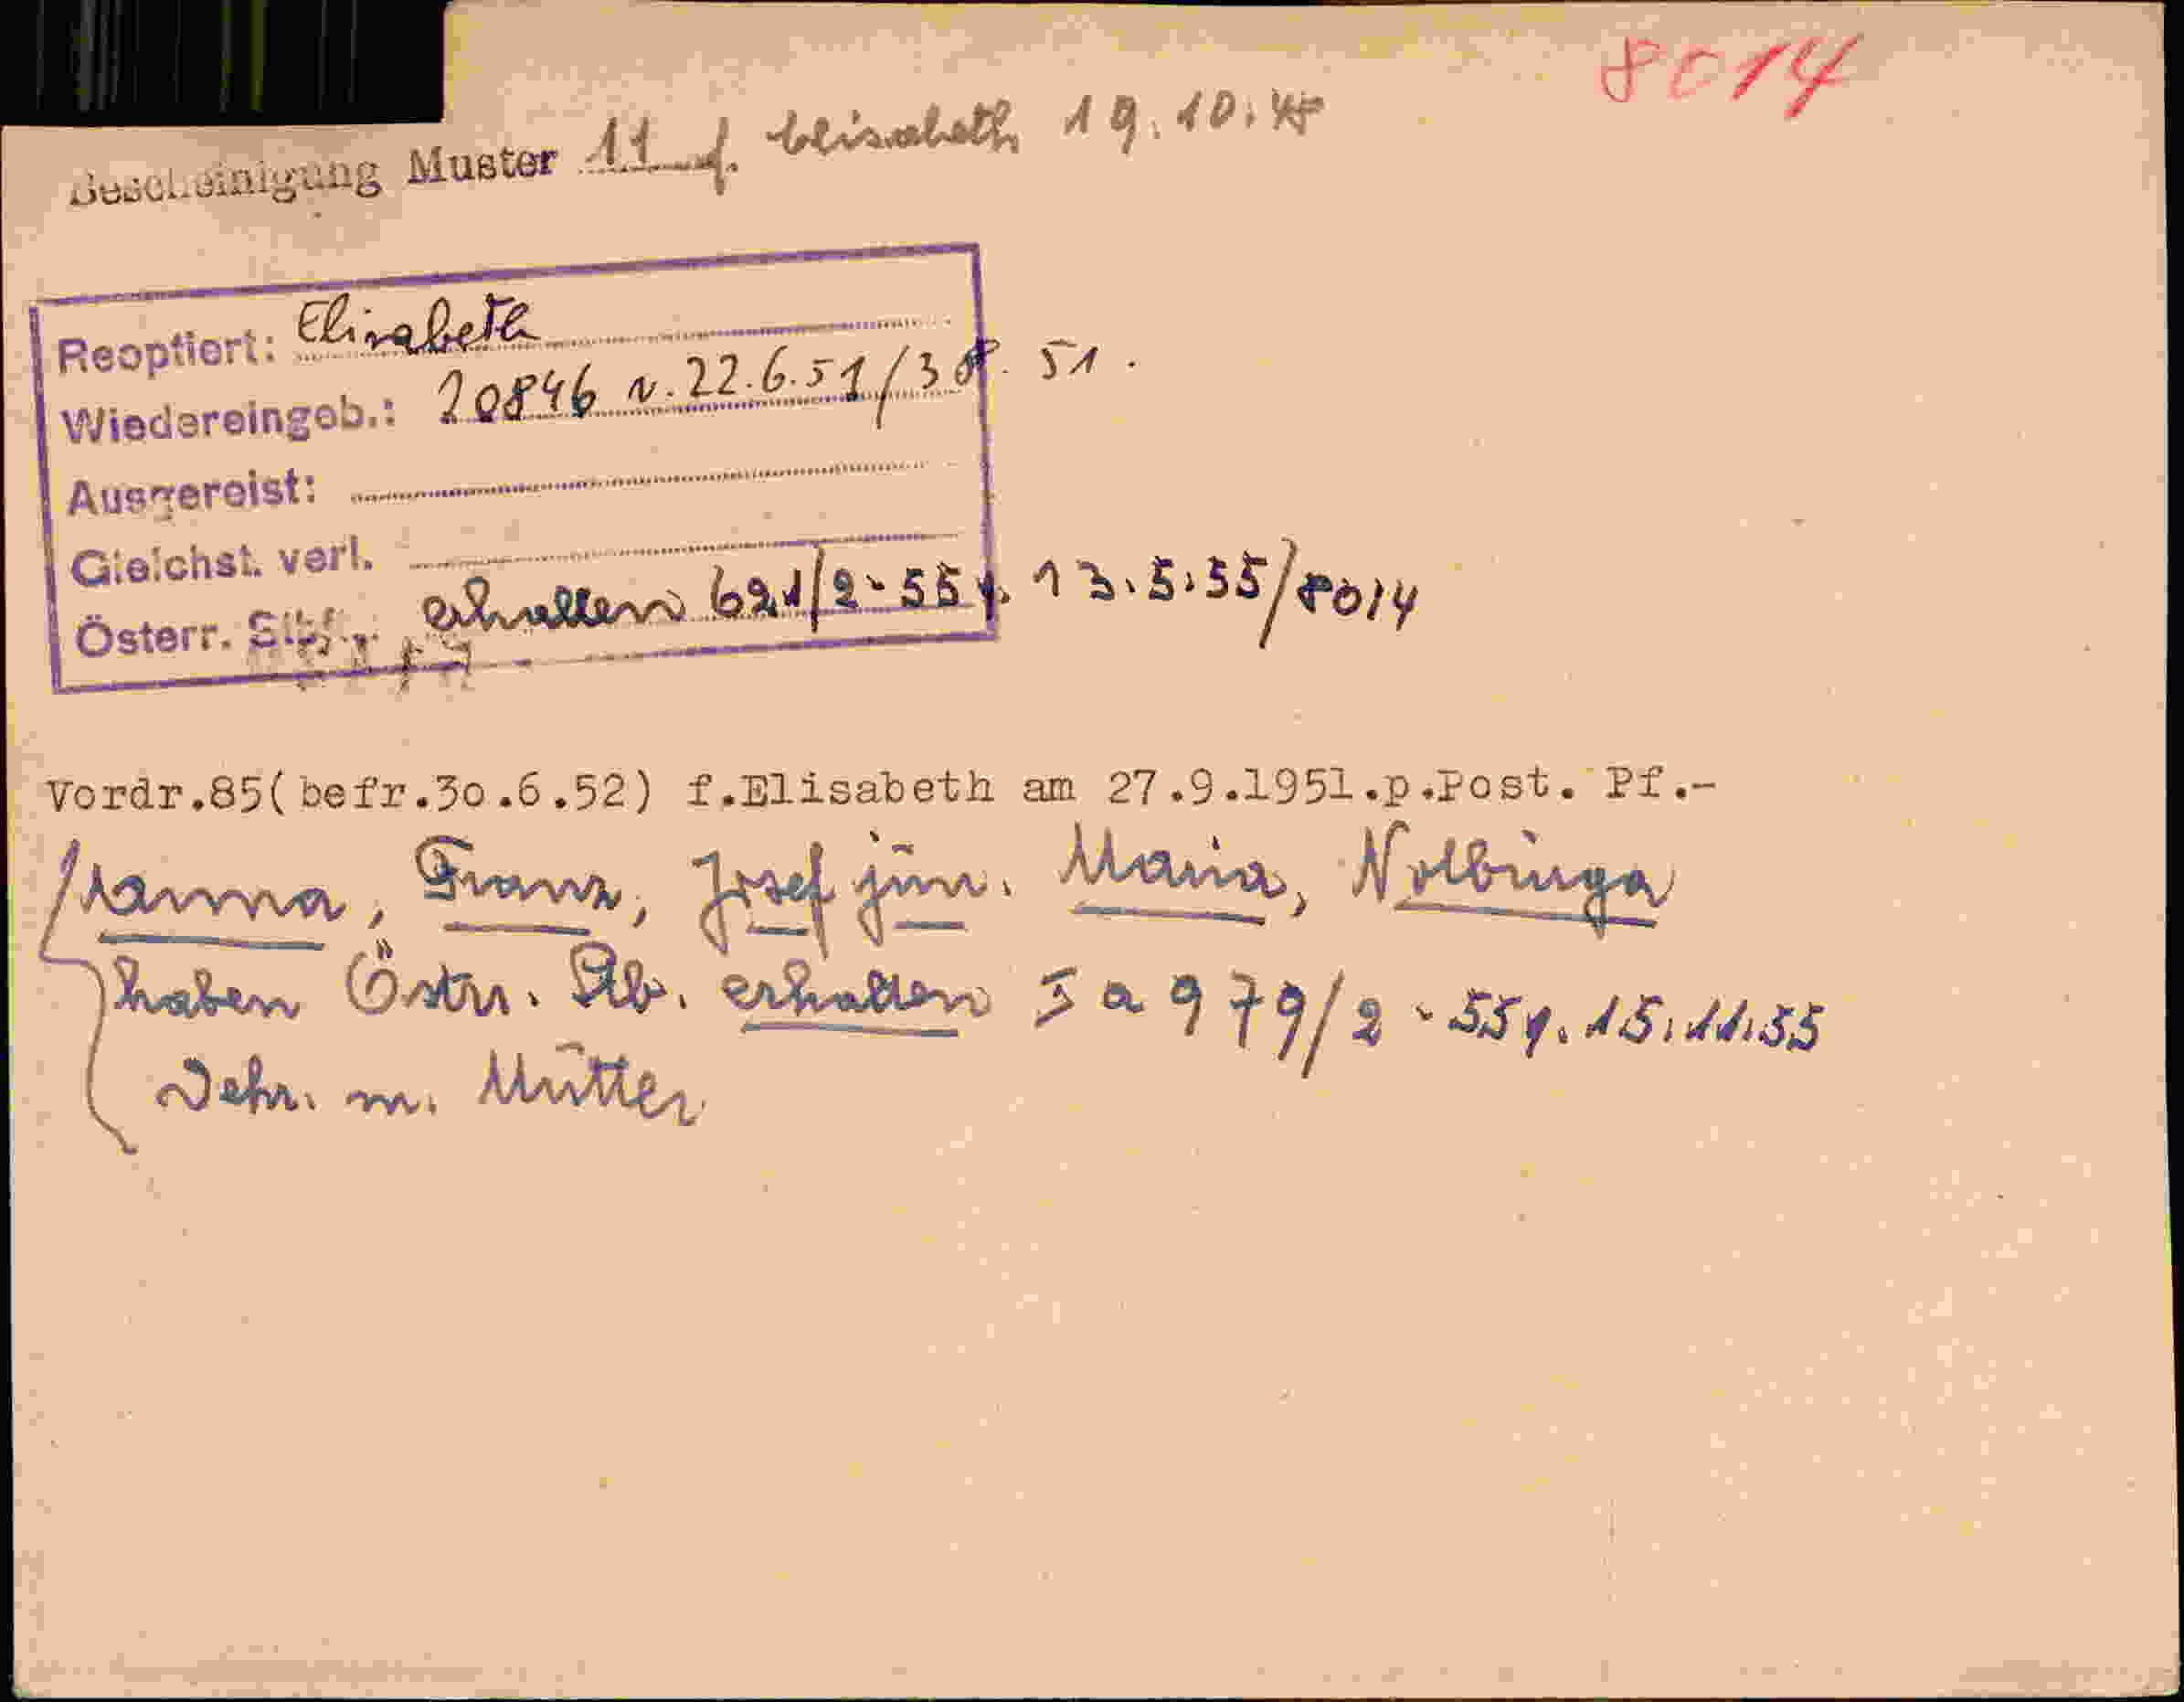 8014
Bescheinigung Muster 11 f. Elisabeth 19.10.
Reoptiert: Elisabeth
Wiedereingeb.: 20846 v. 22.6.51/38. 51.
Ausgereist:
Gleichst. verl.
Österr. Stb. erhalten 621/2-55 v. 13.5.55/8014
Vordr.85(befr.30.6.52) f.Elisabeth am 27.9.1951.p.Post. Pf.-
Franz, Josef jun. Maria, Notburga
haben Östr. Stb. erhalten I a 979/2-55 v. 15.11.55
m. Mutter